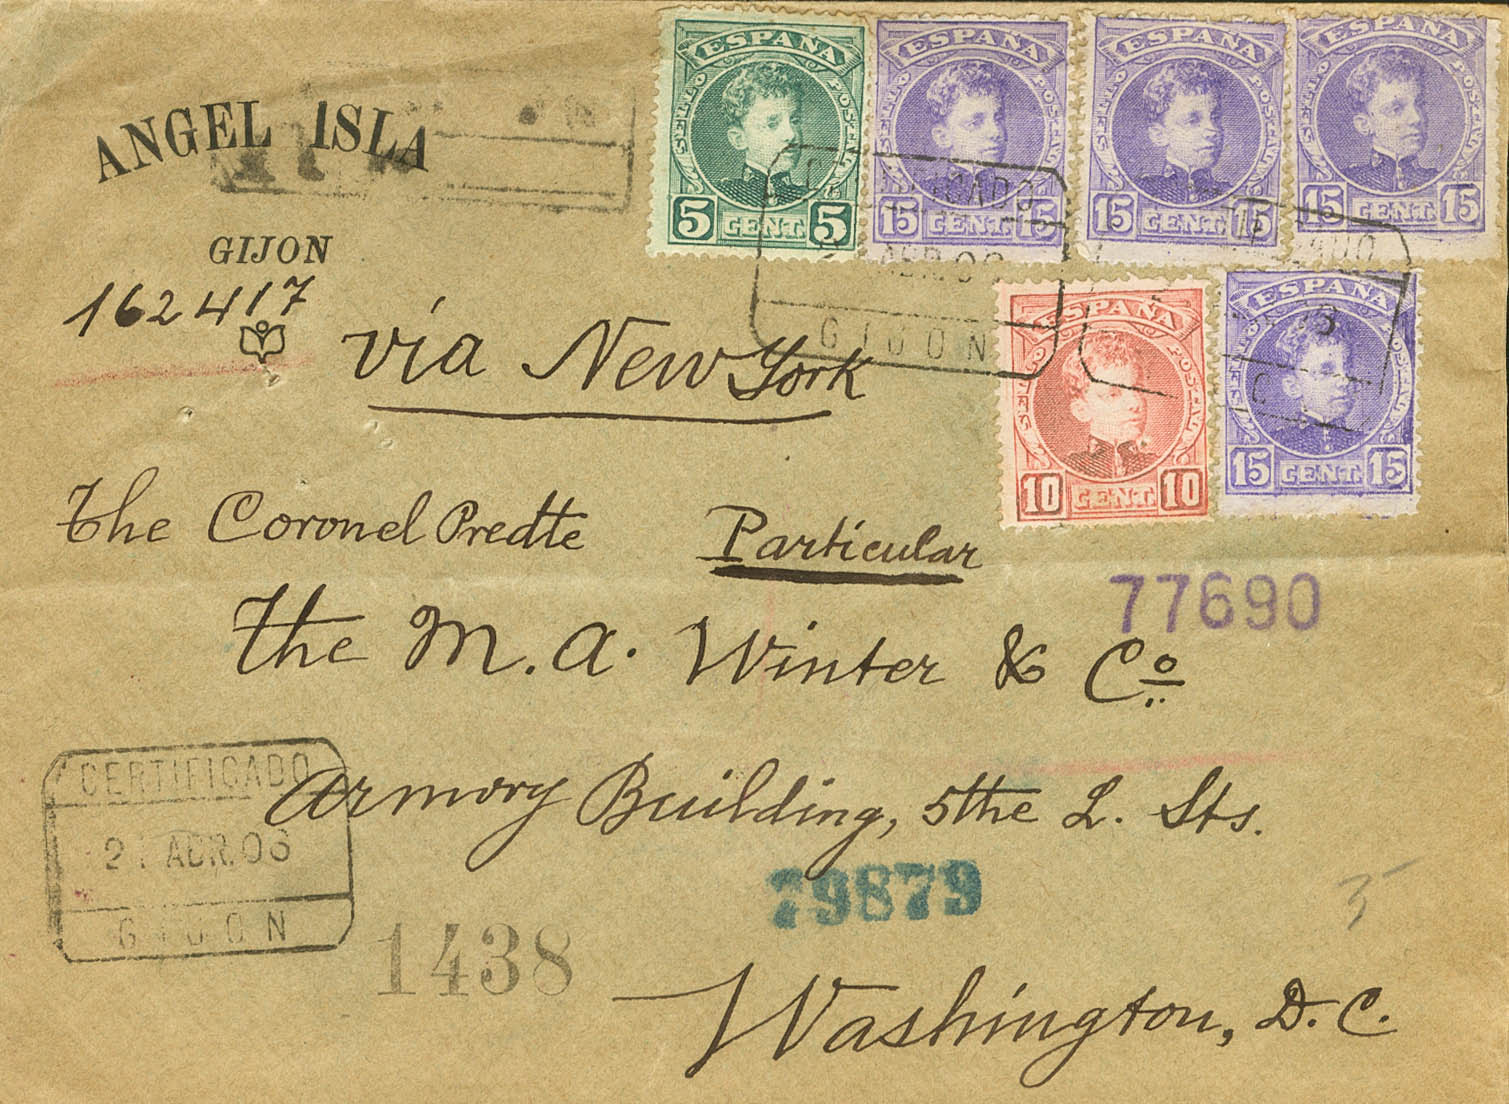 ESPAÑA
SELLO POSTAL
5 CENT. 5
ESPAÑA
SELLO POSTAL
15 CENT. 15
ESPAÑA
SELLO POSTAL
15 CENT. 15
ESPAÑA
SELLO POSTAL
15 CENT. 15
ANGEL ISLA
GIJON
162417
GIJON
ESPAÑA
SELLO POSTAL
10 CENT. 10
ESPAÑA
SELLO POSTAL
15 CENT. 15
via New York
The Coronel Predte Particular
77690
The M. A. Winter & Co
CERTIFICADO
ABR. 06
GIJON
Armory Building, 5the L. Sts.
79879
1438
Washington, D. C.